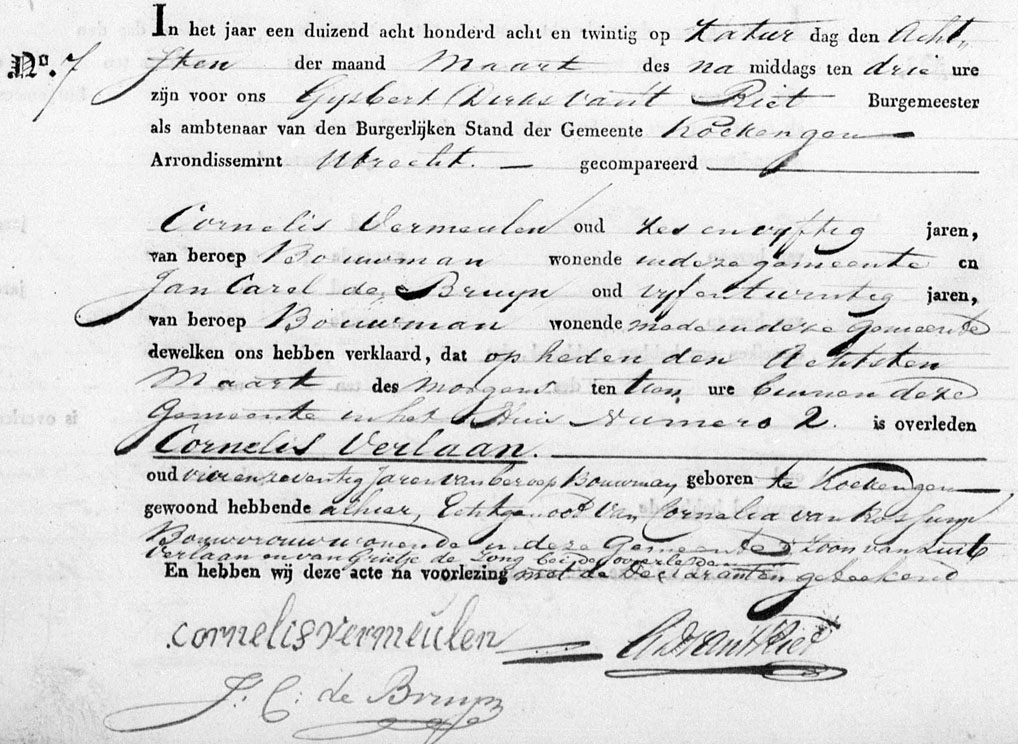 In het jaar een duizend acht honderd acht en twintig op Zatur dag den Acht„
No. 7 sten der maand Maart des na middags ten drie ure
zijn voor ons Gysbert Dirks van't Riet Burgemeester
als ambtenaar van den Burgerlijken Stand der Gemeente Kockengen
Arrondissemrnt Utrecht. — gecompareerd
Cornelis Vermeulen oud zes en vyftig jaren,
van beroep Bouwman wonende in deze gemeente en
Jan Carel de Bruyn oud vyf en twintig jaren,
van beroep Bouwman wonende mede in deze Gemeente
dewelken ons hebben verklaard, dat op heden den Achtsten
Maart des morgens ten tien ure binnen deze
Gemeente in het Huis Numero 2. is overleden
Cornelis Verlaan.
oud vier en zeventig Jaren van beroep Bouwman, geboren te Kockengen
gewoond hebbende alhier, Echtgenoot van Cornelia van Rossum
Bouwvrouw wonende in deze Gemeente Zoon van Luit
Verlaan en van Grietje de Jong beide overleden
En hebben wij deze acte na voorlezing met de Declaranten geteekend
cornelis vermeulen
GD van't Riet
J. C: de Bruyn